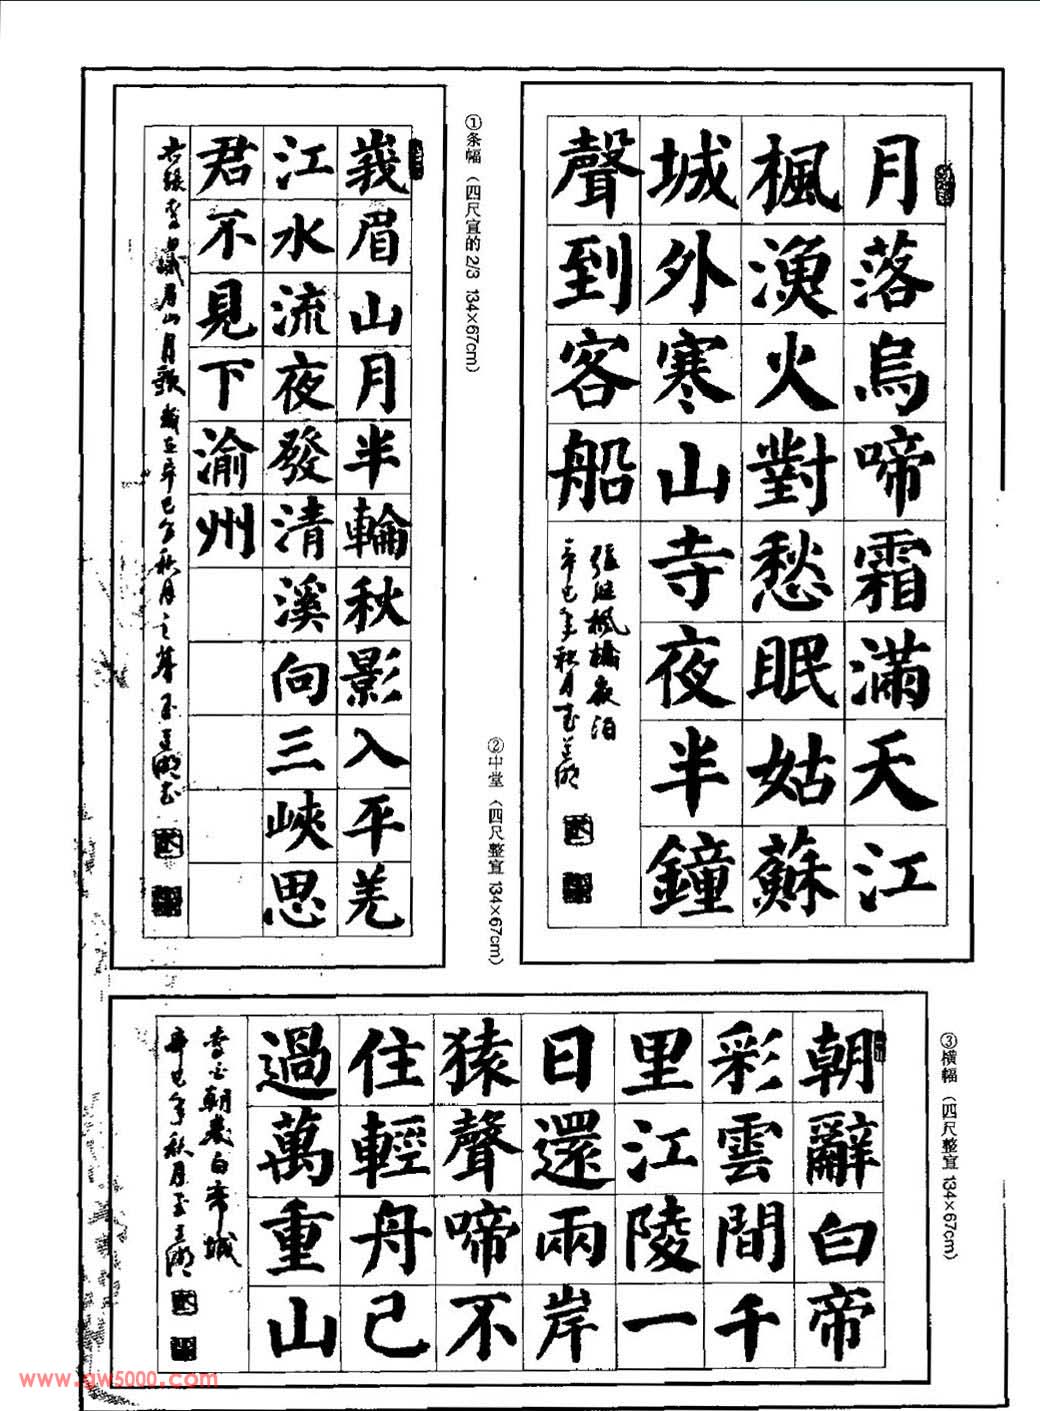 月落烏啼霜滿天江
楓漁火對愁眠姑蘇
城外寒山寺夜半鐘
聲到客船
張継楓橋夜泊
辛巳年秋月
①条幅（四尺宣的2/3 134×67cm）
峩眉山月半輪秋影入平羌
江水流夜發清溪向三峽思
君不見下渝州
李白峨眉山月歌歲在辛巳年秋月之
②中堂（四尺整宣 134×67cm）
③横幅（四尺整宣 134×67cm）
朝辭白帝
彩雲間千
里江陵一
日還兩岸
猿聲啼不
住輕舟己
過萬重山
李白朝發白帝城
辛巳年秋月
www.qw5000.com